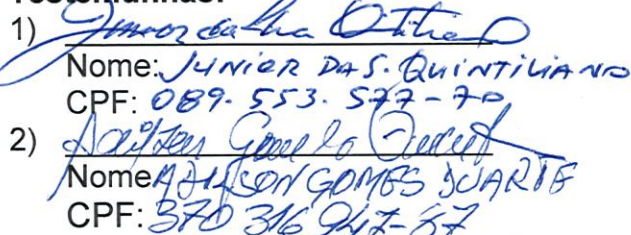 Testemunhas:
1)
Nome: JUNIOR DA S. QUINTILIANO
CPF: 089.553.577-70
2) Adilson Gomes Duarte
Nome ADILSON GOMES DUARTE
CPF: 370 316 947-87